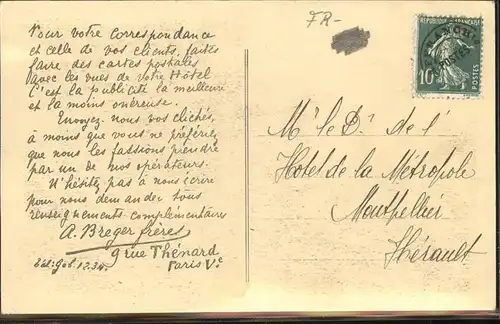 Pour votre correspondance
et celle de vos clients, faites
faire des cartes postales
avec les vues de votre Hôtel
C'est la publicité la meilleure
et la moins onéreuse.
Envoyez-nous vos clichés,
à moins que vous ne préfériez
que nous les fassions prendre
par un de nos opérateurs.
N'hésitez pas à nous écrire
pour nous demander tous
renseignements complémentaires
A. Breger frères
9 rue Thénard
Paris Ve
FR-
REPUBLIQUE FRANCAISE
10c
POSTES
Mr le Dr de l'
Hôtel de la Métropole
Montpellier
Hérault